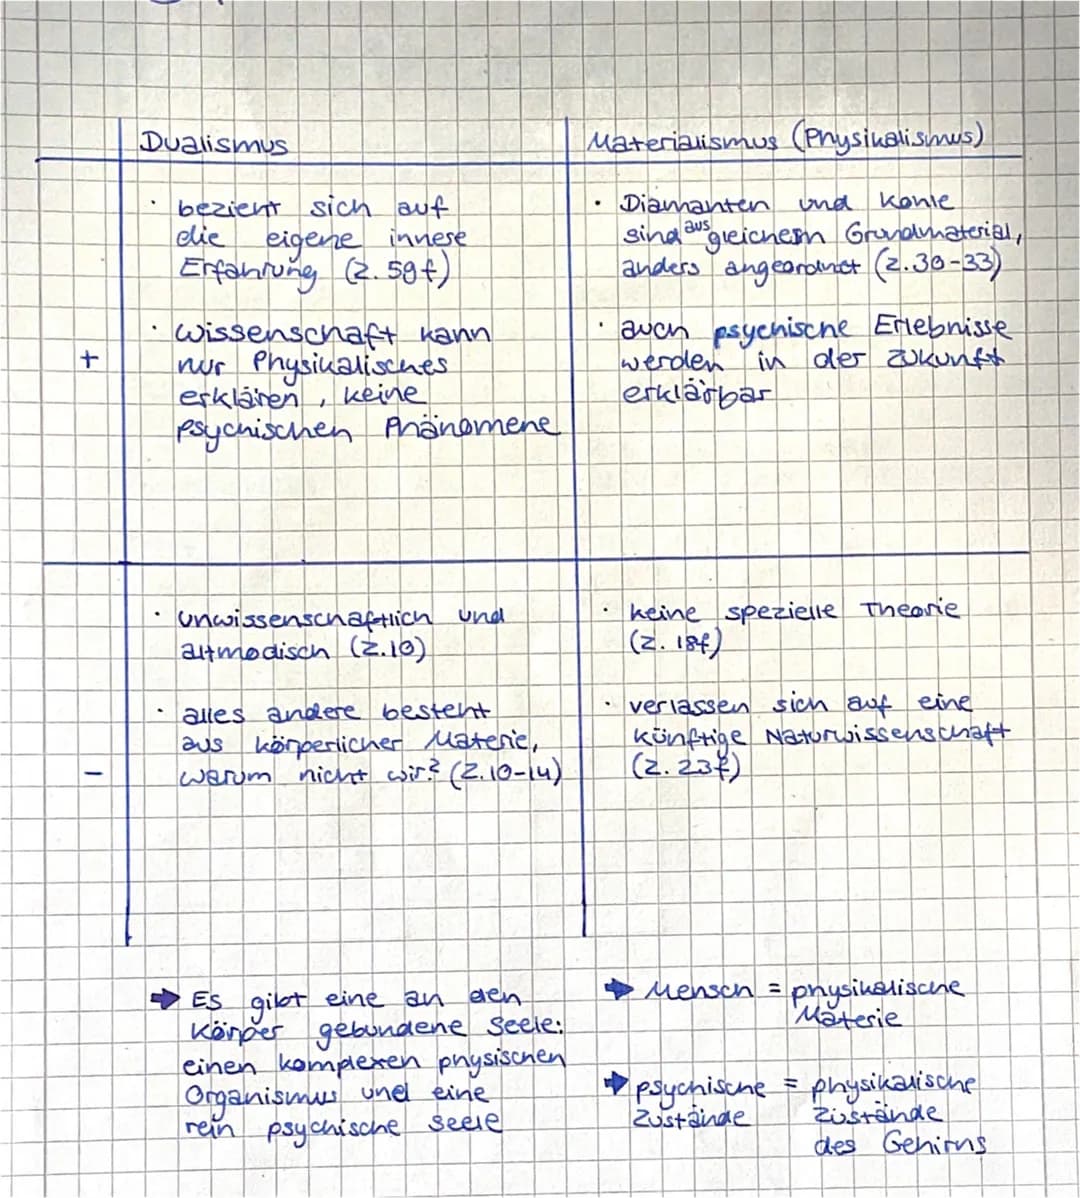 Dualismus
Materialismus (Physikalismus)
+
· bezieht sich auf
die eigene innese
Erfahrung (Z. 59f)
· Wissenschaft kann
nur Physikalisches
erklären, keine
psychischen Phänomene
· Diamanten und Kohle
sind aus gleichem Grundmaterial,
anders angeordnet (Z.30-33)
· auch psychische Erlebnisse
werden in der Zukunft
erklärbar
-
· unwissenschaftlich und
altmodisch (Z.10)
· alles andere besteht
aus körperlicher Materie,
warum nicht wir? (Z.10-14)
· keine spezielle Theorie
(Z. 18f)
· verlassen sich auf eine
künftige Naturwissenschaft
(Z. 23f)
➡ Es gibt eine an den
Körper gebundene Seele:
einen komplexen physischen
Organismus und eine
rein psychische Seele
➡ Mensch = physikalische
Materie
➡ psychische = physikalische
Zustände Zustände
des Gehirns